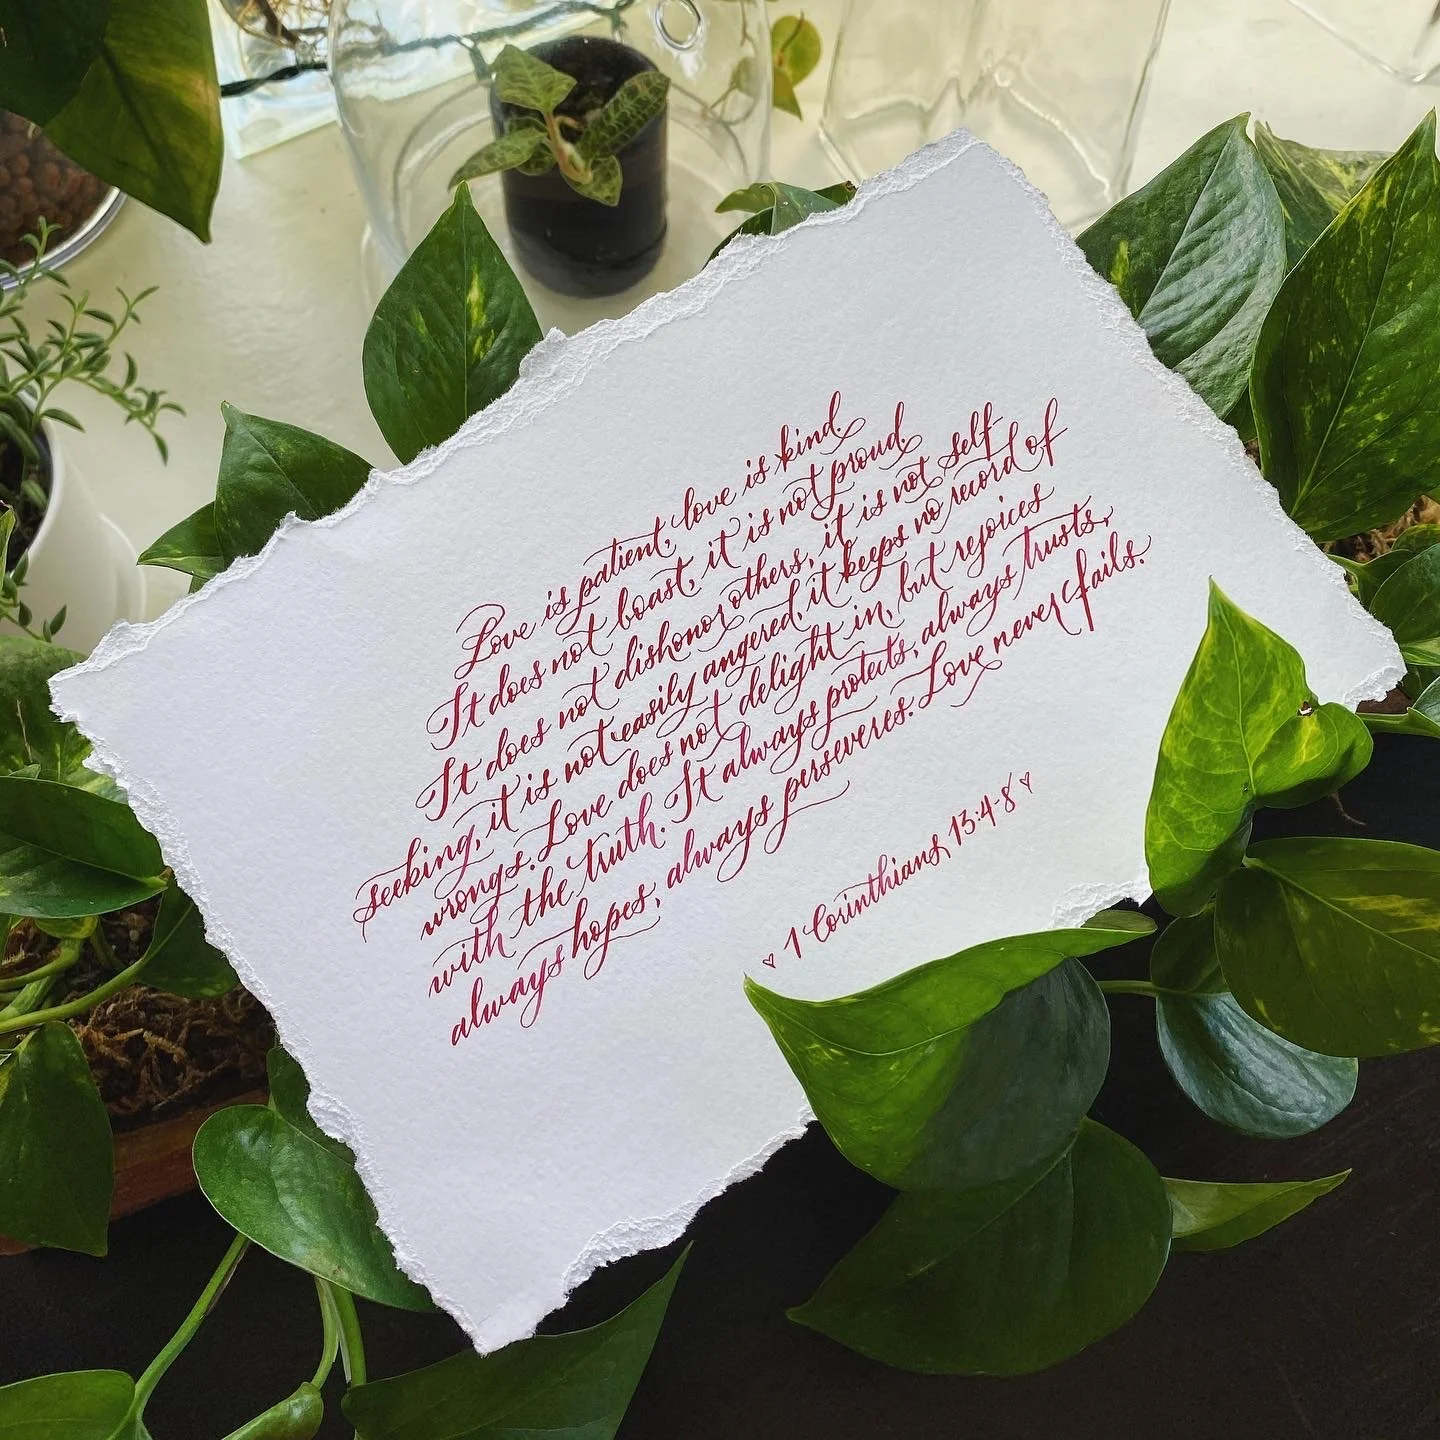 Love is patient, love is kind.
It does not boast, it is not proud.
It does not dishonor others, it is not self
seeking, it is not easily angered, it keeps no record of
wrongs. Love does not delight in, but rejoices
with the truth. It always protects, always trusts,
always hopes, always perseveres. Love never fails.
♡ 1 Corinthians 13:4-8 ♡